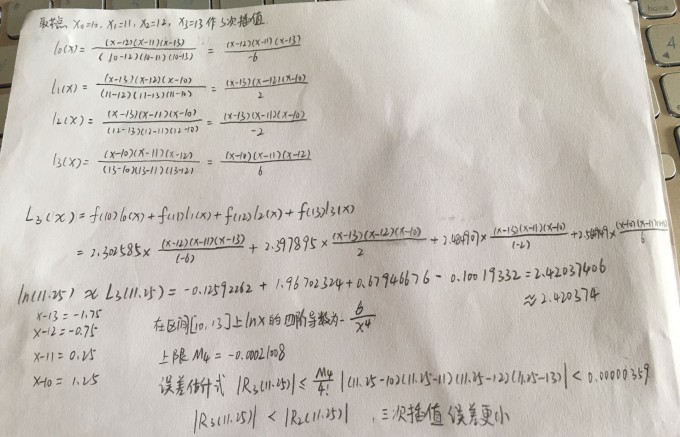 取节点 X₀=10, X₁=11, X₂=12, X₃=13 作3次插值
l₀(x) = (x-12)(x-11)(x-13) / (10-12)(10-11)(10-13) = (x-12)(x-11)(x-13) / -6
l₁(x) = (x-13)(x-12)(x-10) / (11-12)(11-13)(11-10) = (x-13)(x-12)(x-10) / 2
l₂(x) = (x-13)(x-11)(x-10) / (12-13)(12-11)(12-10) = (x-13)(x-11)(x-10) / -2
l₃(x) = (x-10)(x-11)(x-12) / (13-10)(13-11)(13-12) = (x-10)(x-11)(x-12) / 6
L₃(x) = f(10)l₀(x) + f(11)l₁(x) + f(12)l₂(x) + f(13)l₃(x)
= 2.302585× (x-12)(x-11)(x-13) / (-6) + 2.397895× (x-13)(x-12)(x-10) / 2 + 2.484907× (x-13)(x-11)(x-10) / (-2) + (x-10)(x-11)(x-12) / 6
ln(11.25) ≈ L₃(11.25) = -0.12592262 + 1.96702324 + 0.67946676 - 0.10019332 = 2.42037406
≈ 2.420374
x-13 = -1.75
x-12 = -0.75
在区间[10,13]上lnx的四阶导数为 - 6 / x⁴
x-11 = 0.25
上限 M₄ = -0.00021008
x-10 = 1.25
误差估计式 |R₃(11.25)| ≤ M₄ / 4! |(11.25-10)(11.25-11)(11.25-12)(11.25-13)| < 0.00000359
|R₃(11.25)| < |R₂(11.25)| , 三次插值误差更小